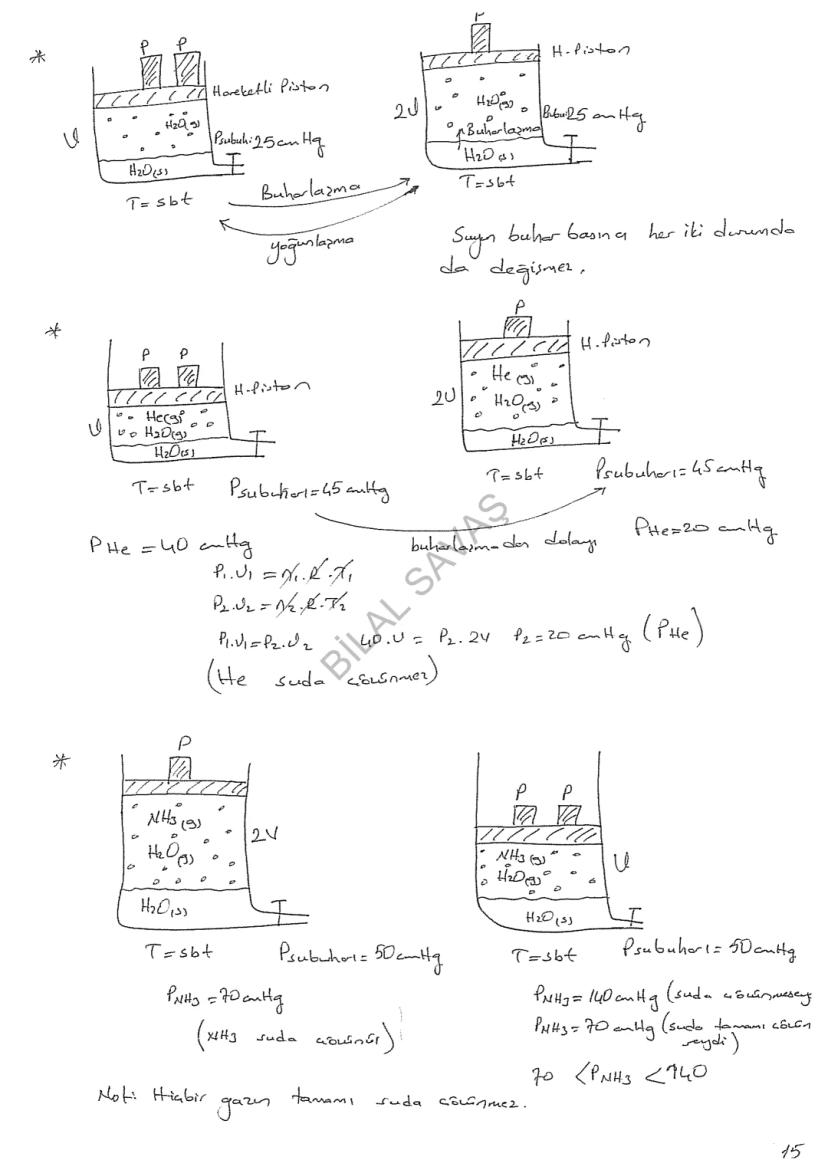 *
P P
Hareketli Piston
V
H2O(g)
Psubuhı:25 cmHg
H2O(s)
T=sbt
P
H-Piston
2V
H2O(g)
Buharlaşma
25 cmHg
H2O(s)
T=sbt
Buharlaşma
yoğunlaşma
Suyun buhar basıncı her iki durumda
da değişmez.
*
P P
H-Piston
V
He(g)
H2O(g)
H2O(s)
T=sbt Psubuharı=45 cmHg
P
H-Piston
2V
He(g)
H2O(g)
H2O(s)
T=sbt Psubuharı=45 cmHg
buharlaşmadan dolayı
PHe = 40 cmHg
PHe=20 cmHg
P1.V1 = n1.R.T1
P2.V2 = n2.R.T2
P1.V1=P2.V2 40.V = P2.2V P2=20 cmHg (PHe)
(He suda çözünmez)
BİLAL SAVAŞ
*
P
NH3(g)
H2O(g)
2V
H2O(s)
T=sbt Psubuharı=50 cmHg
PNH3=70 cmHg
(NH3 suda çözünür)
P P
NH3(g)
H2O(g)
V
H2O(s)
T=sbt Psubuharı=50 cmHg
PNH3=140 cmHg (suda çözünmeseydi
PNH3=70 cmHg (suda tamamı çözün
seydi)
70 <PNH3 <140
Not: Hiçbir gazın tamamı suda çözünmez.
15